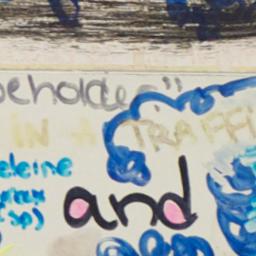 beholder"
IN A TRAFFI
eleine
and